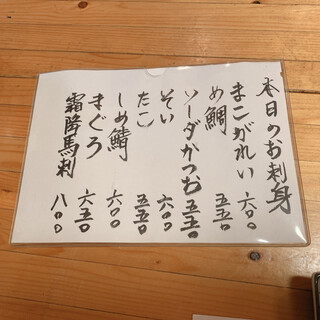 本日のお刺身
まこがれい 六〇〇
め鯛 五五〇
ソーダかつお 五五〇
そい 六〇〇
たこ 五五〇
しめ鯖 六〇〇
まぐろ 六五〇
霜降馬刺 八〇〇